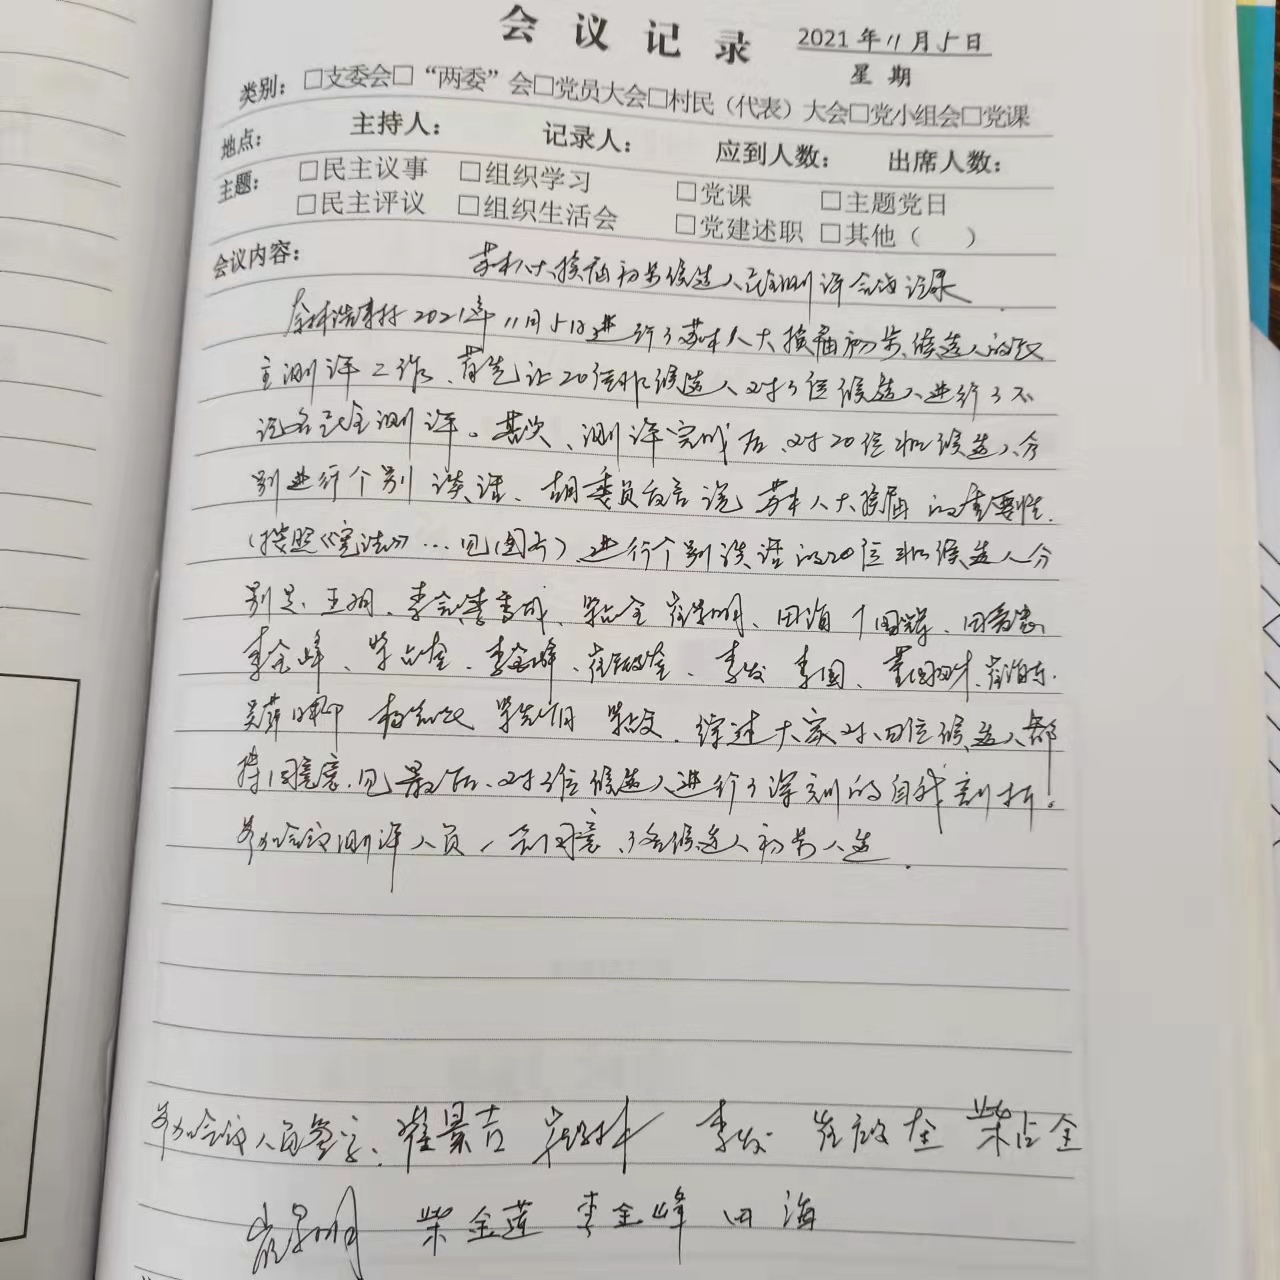 会议记录 2021年11月5日
星期
类别：□支委会□“两委”会□党员大会□村民（代表）大会□党小组会□党课
地点： 主持人： 记录人： 应到人数： 出席人数：
主题： □民主议事 □组织学习 □党课 □主题党日
□民主评议 □组织生活会 □党建述职 □其他（ ）
会议内容： 苏木人大换届初步候选人民主测评会议记录
2021年11月5日进行了苏木人大换届初步候选人的民
主测评工作、首先让20位非候选人对3位候选人进行了不
记名民主测评。其次、测评完成后、对20位非候选人分
别进行个别谈话、胡委员发言说苏木人大换届的重要性.
（按照《宪法》…见图片）进行个别谈话的20位非候选人分
别是、王 、李 田海 田
李金峰、柴占奎、李金峰、崔政奎、李发 李国、
综述大家对、四位候选人都
持同意意见最后、对3位候选人进行了深刻的自我剖析。
参加会议测评人员一致同意、3名候选人初步人选.
参加会议人员签字、崔景吉 李发 崔政奎 柴占全
柴金莲 李金峰 田海